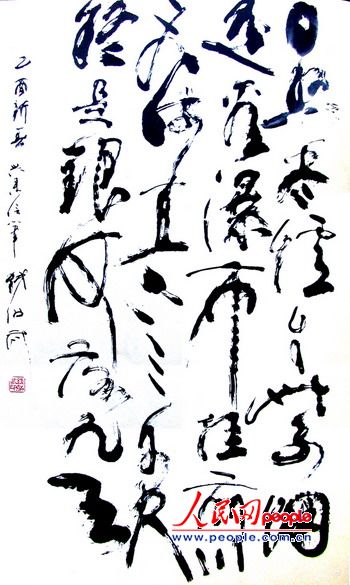 日照香爐生紫烟
遥看瀑布挂前川
飞流直下三千尺
疑是銀河落九天
乙酉新春
人民网
people
www.people.com.cn